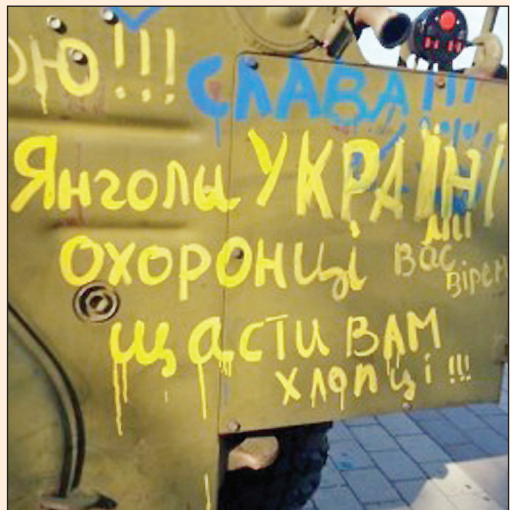 ОЮ!!! СЛАВА!!!
Янголи УКРАЇНІ
ми
охоронці вас
вірем
щасти ВАМ
хлопці!!!